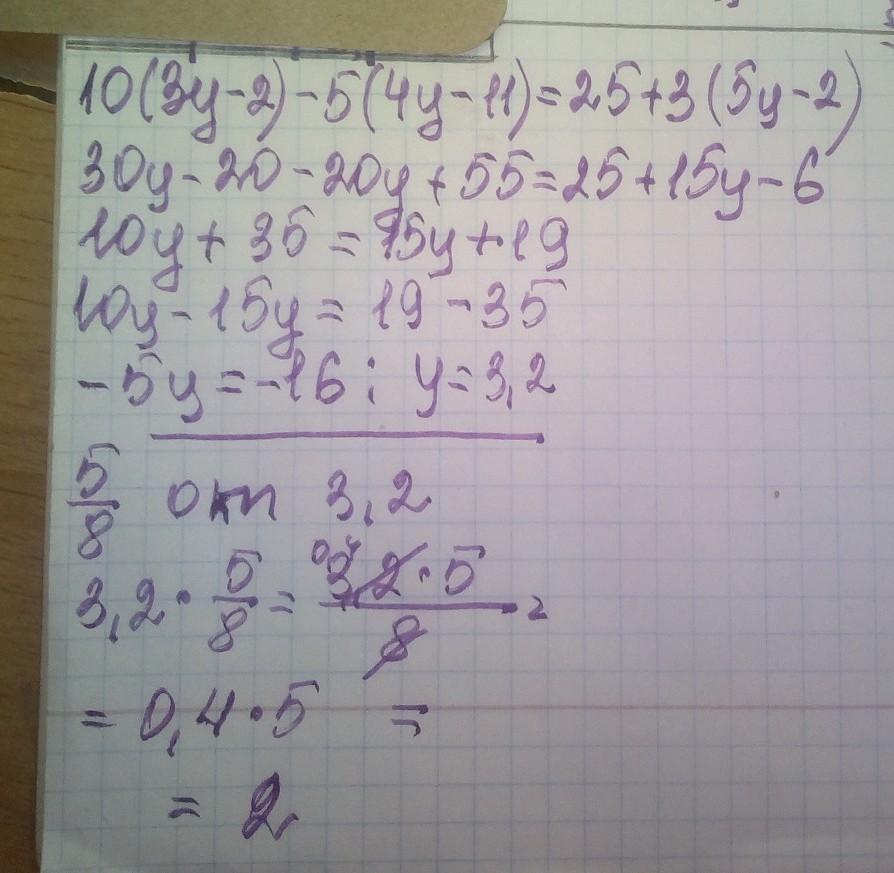 10(3y-2)-5(4y-11)=25+3(5y-2)
30y-20-20y+55=25+15y-6
10y+35=15y+19
10y-15y=19-35
-5y=-16; y=3,2
5/8 от 3,2
3,2·5/8=3,2·5/8=
=0,4·5=
=2